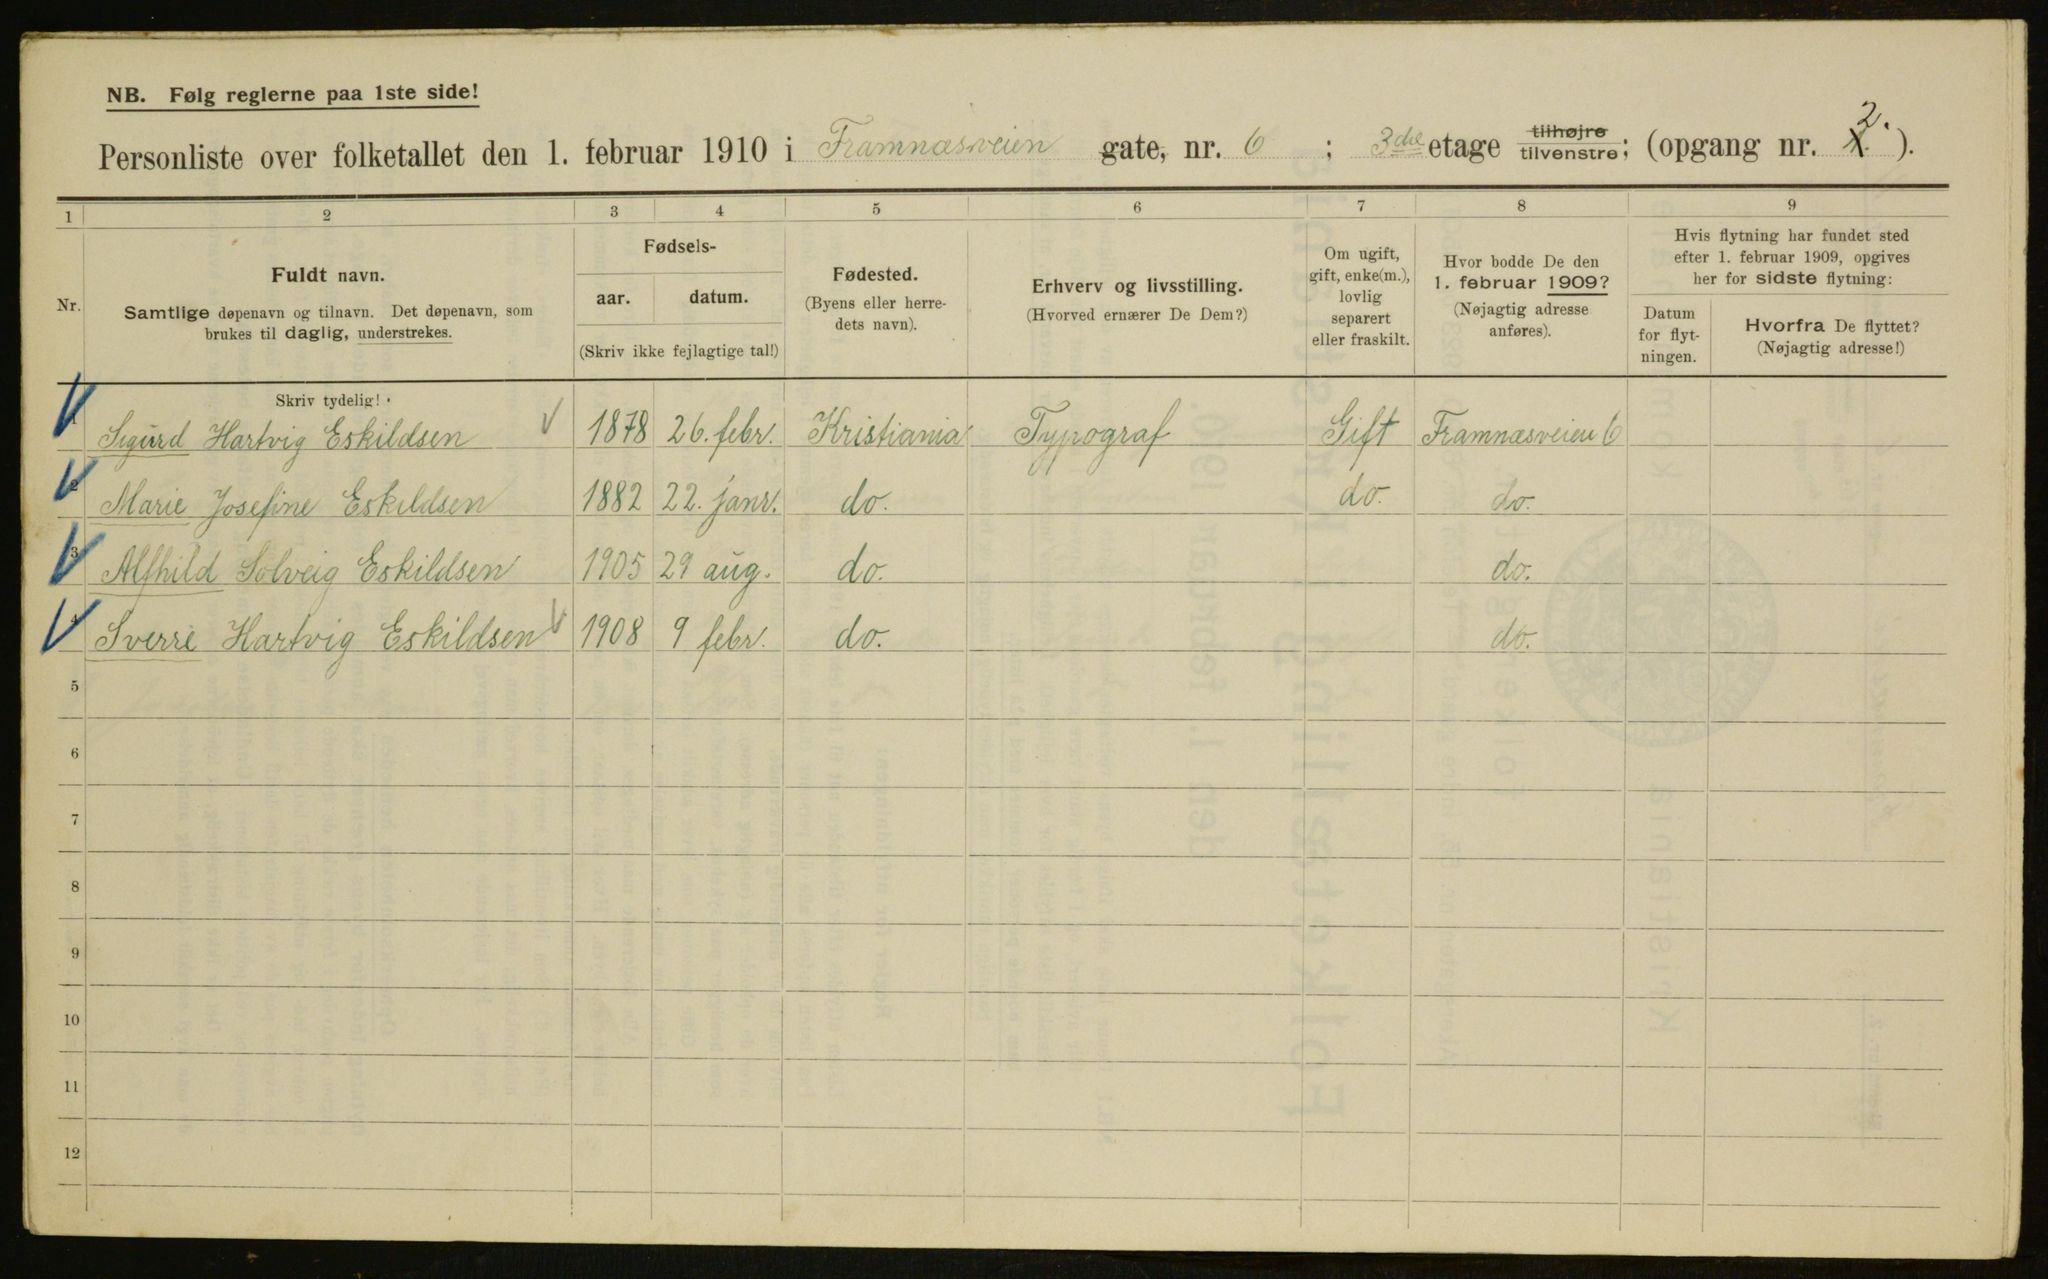 NB. Følg reglerne paa 1ste side!
Personliste over folketallet den 1. februar 1910 i Framnæsveien gate, nr. 6 ; 3die etage tilhøjre tilvenstre; (opgang nr. 2.).
1 2 3 4 5 6 7 8 9
Nr.
Fuldt navn.
Samtlige døpenavn og tilnavn. Det døpenavn, som
brukes til daglig, understrekes.
Fødsels-
aar. datum.
(Skriv ikke fejlagtige tal!)
Fødested.
(Byens eller herre-
dets navn).
Erhverv og livsstilling.
(Hvorved ernærer De Dem?)
Om ugift,
gift, enke(m.),
lovlig
separert
eller fraskilt.
Hvor bodde De den
1. februar 1909?
(Nøjagtig adresse
anføres).
Hvis flytning har fundet sted
efter 1. februar 1909, opgives
her for sidste flytning:
Datum
for flyt-
ningen.
Hvorfra De flyttet?
(Nøjagtig adresse!)
Skriv tydelig!
1 Sigurd Hartvig Eskildsen 1878 26. febr. Kristiania Typograf Gift Framnæsveien 6
2 Marie Josefine Eskildsen 1882 22. janr. do. do. do.
3 Alfhild Solveig Eskildsen 1905 29 aug. do. do.
4 Sverre Hartvig Eskildsen 1908 9 febr. do. do.
5
6
7
8
9
10
11
12